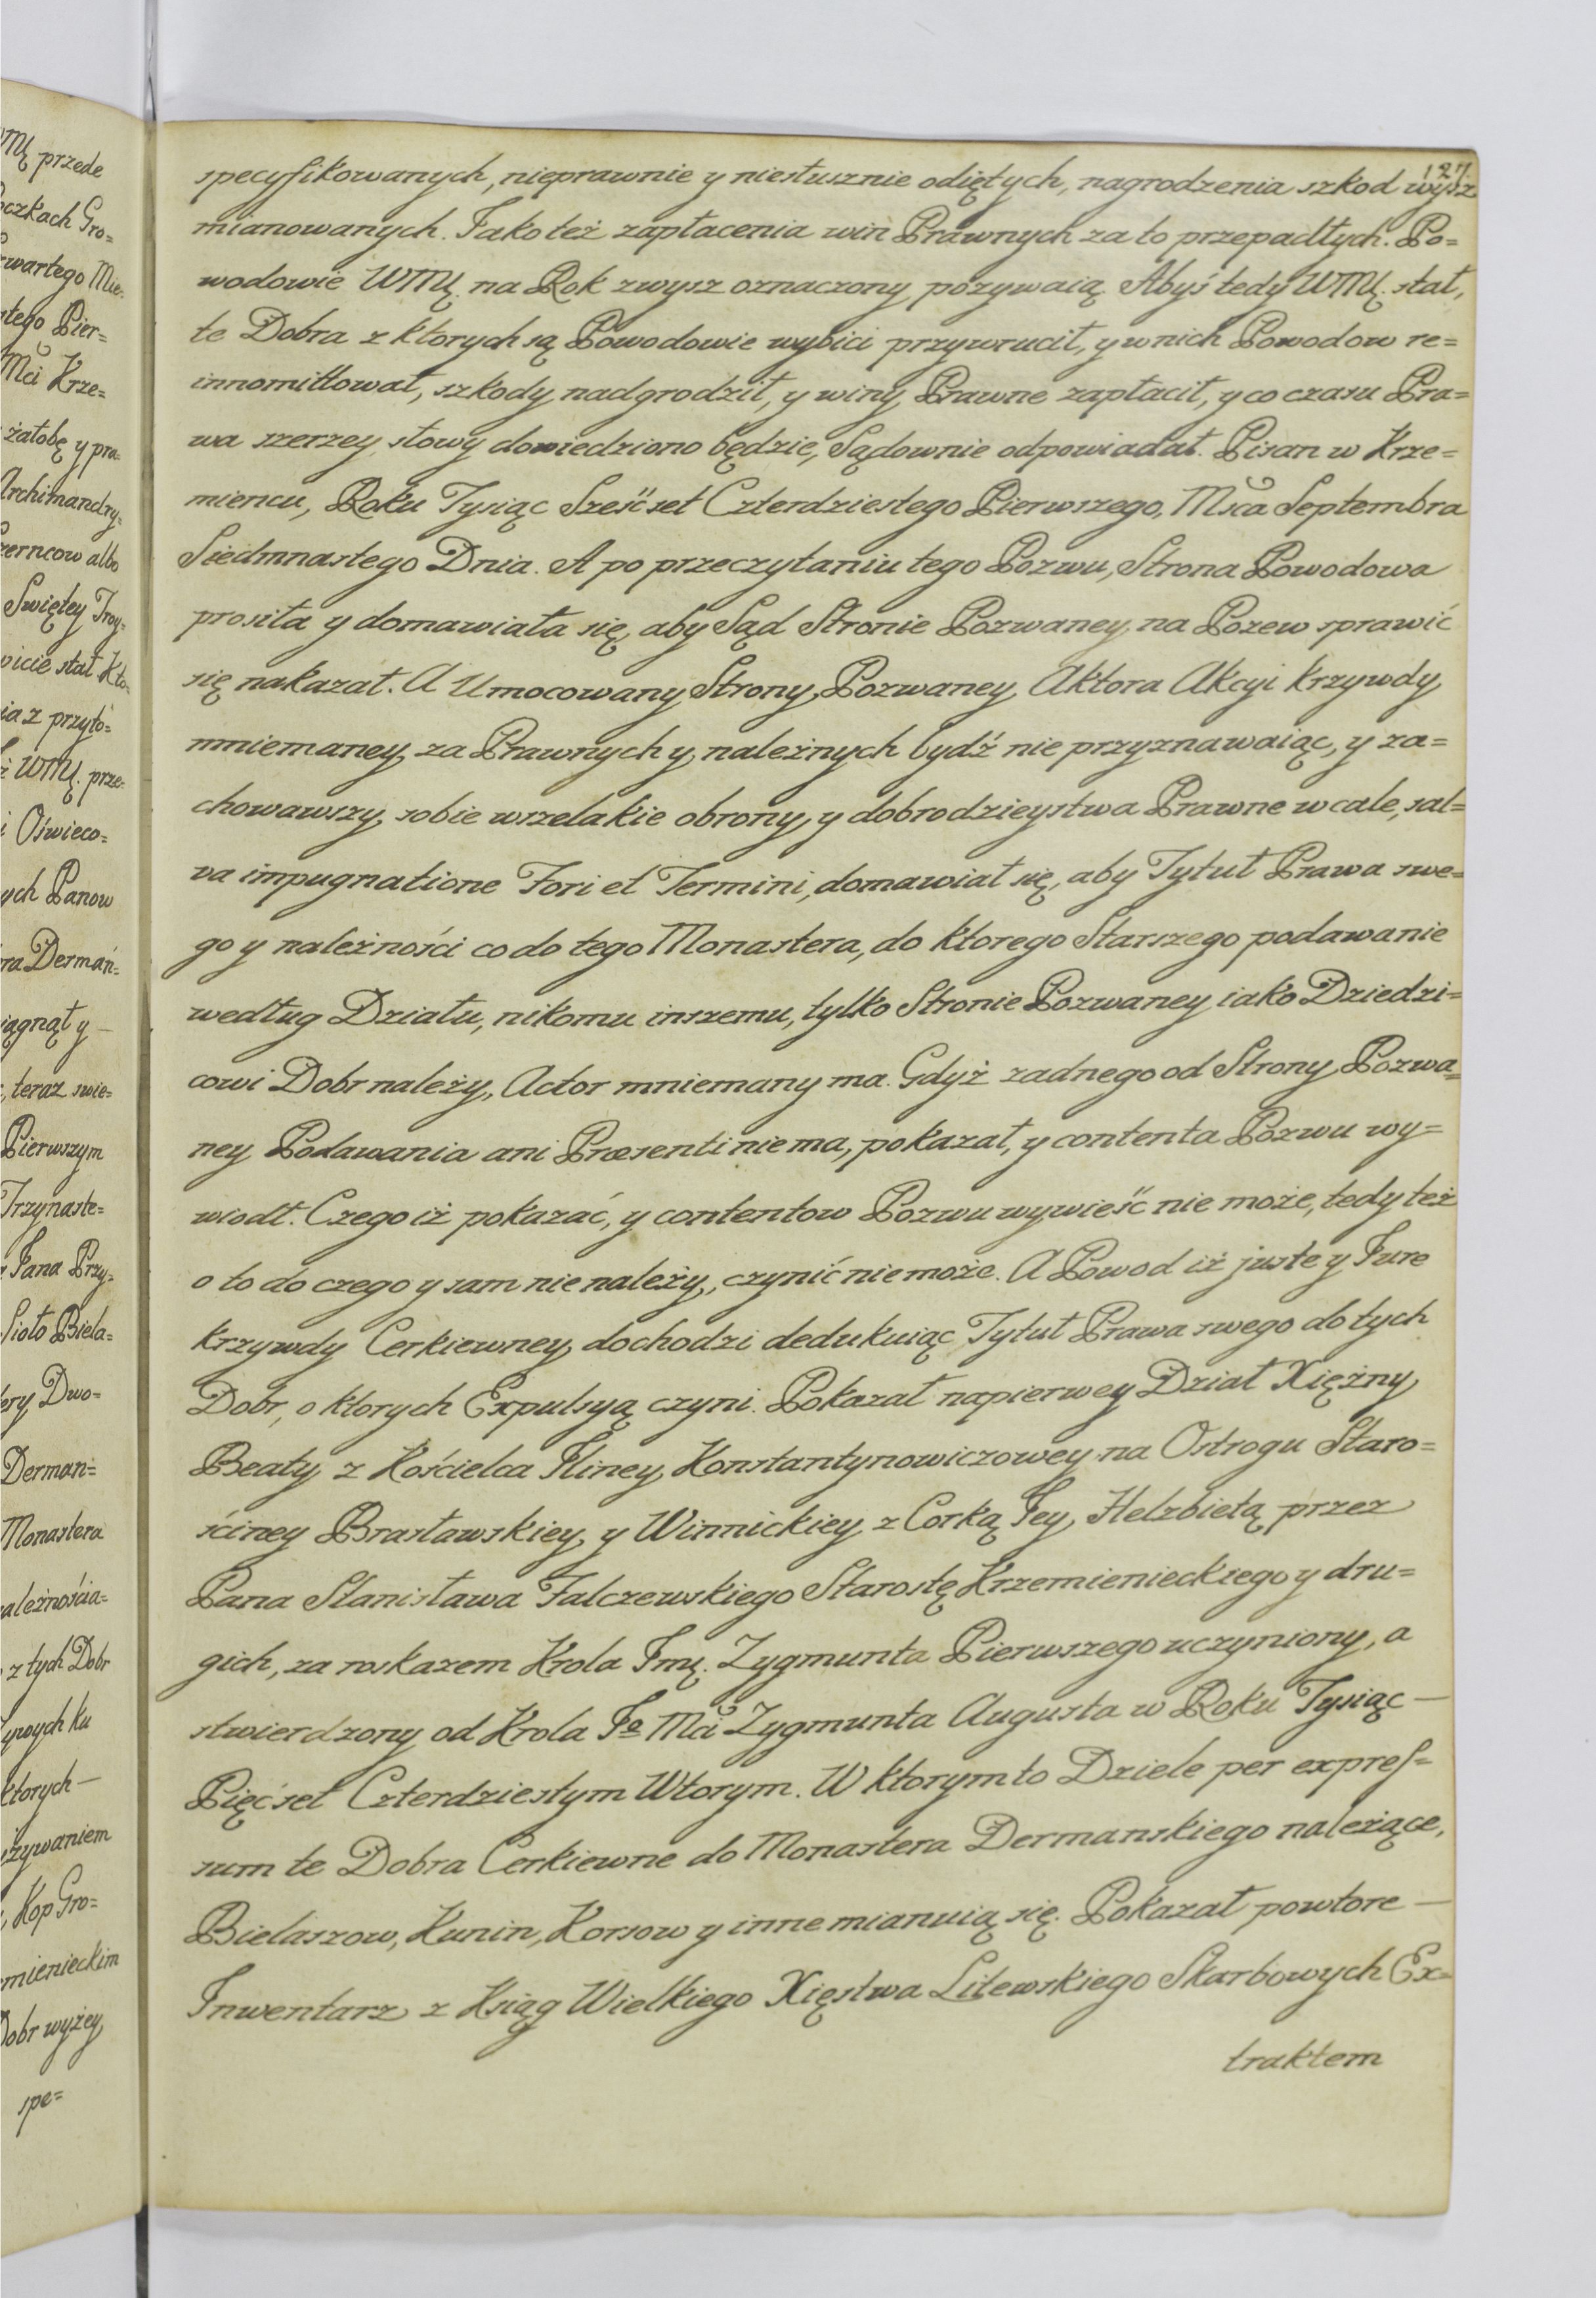 Mų przede
oczkach Gro=
zwartego Mie=
stego Pier=
Mci Krze=
żałobę y pra=
Archimandry=
zerncow albo
Swiętey Troy=
wicie stał Kto=
ia z przyło=
ż WMų. prze=
i Oświeco=
ych Panow
ra Dermań=
iągnął y —
, teraz swie=
Pierwszym
Trzynaste=
Jana Przy=
Sioło Biela=
ery Dwo=
Derman=
Monastera
należnościa=
z tych Dobr
ktorych —
używaniem
, Kop Gro=
emienieckim
Dobr wyżey
spe=
127.
specyfikowanych, nieprawnie y niesłusznie odiętych, nagrodzenia szkod wysz
mianowanych. Jako też zapłacenia win Prawnych za to przepadłych. Po=
wodowie WMų. na Rok zwysz oznaczony pozywaią. Abyś tedy WMų. stał,
te Dobra z ktorych są Powodowie wybici przywrucił, y w nich Powodow re=
innomittował, szkody nadgrodził, y winy Prawne zapłacił, y co czasu Pra=
wa szerzey słowy dowiedziono będzie, Sądownie odpowiadał. Pisan w Krze=
miencu, Roku Tysiąc Sześćset Czterdziestego Pierwszego, Msca Septembra
Siedmnastego Dnia. A po przeczytaniu tego Pozwu, Strona Powodowa
prosiła y domawiała się, aby Sąd Stronie Pozwaney na Pozew sprawić
się nakazał. A Umocowany Strony Pozwaney Aktora Akcyi krzywdy
mniemaney za Prawnych y należnych bydź nie przyznawaiąc, y za=
chowawszy sobie wszelakie obrony y dobrodzieystwa Prawne w cale, sal=
va impugnatione Fori et Termini, domawiał się, aby Tytuł Prawa swe=
go y należności co do tego Monastera, do ktorego Starszego podawanie
według Działu, nikomu inszemu, tylko Stronie Pozwaney iako Dziedzi=
cowi Dobr należy, Actor mniemany ma. Gdyż zadnego od Strony Pozwa=
ney Podawania ani Præsenti nie ma, pokazał, y contenta Pozwu wy=
wiodł. Czego iż pokazać, y contentow Pozwu wywieść nie może, tedy też
o to do czego y sam nie należy, czynić nie może. A Powod iż juste y Jure
krzywdy Cerkiewney dochodzi dedukuiąc Tytuł Prawa swego do tych
Dobr, o ktorych Expulsyą czyni. Pokazał napierwey Dział Xiężny
Beaty z Kościelca Iliney Konstantynowiczowey na Ostrogu Staro=
ściney Brasławskiey y Winnickiey z Corką Jey Helzbietą przez
Pana Stanisława Falczewskiego Starostę Krzemienieckiego y dru=
gich, za roskazem Krola Jmų. Zygmunta Pierwszego uczyniony, a
stwierdzony od Krola Jo Mci Zygmunta Augusta w Roku Tysiąc —
Pięćset Czterdziestym Wtorym. W ktorym to Dziele per expres=
sum te Dobra Cerkiewne do Monastera Dermanskiego należące,
Bielaszow, Kunin, Korsow y inne mianuią się. Pokazał powtore —
Inwentarz z Ksiąg Wielkiego Xięstwa Litewskiego Skarbowych Ex=
traktem